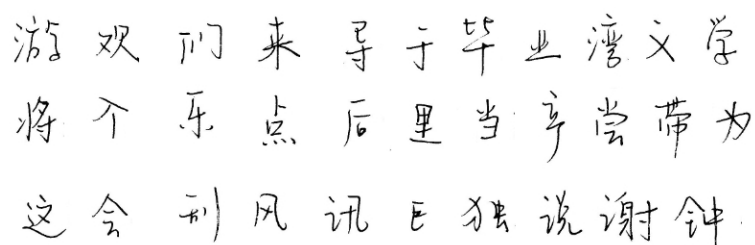 游欢们来导于毕业湾义学
将个乐点后里当辛尝带为
这会刊风讯巨独说谢钟